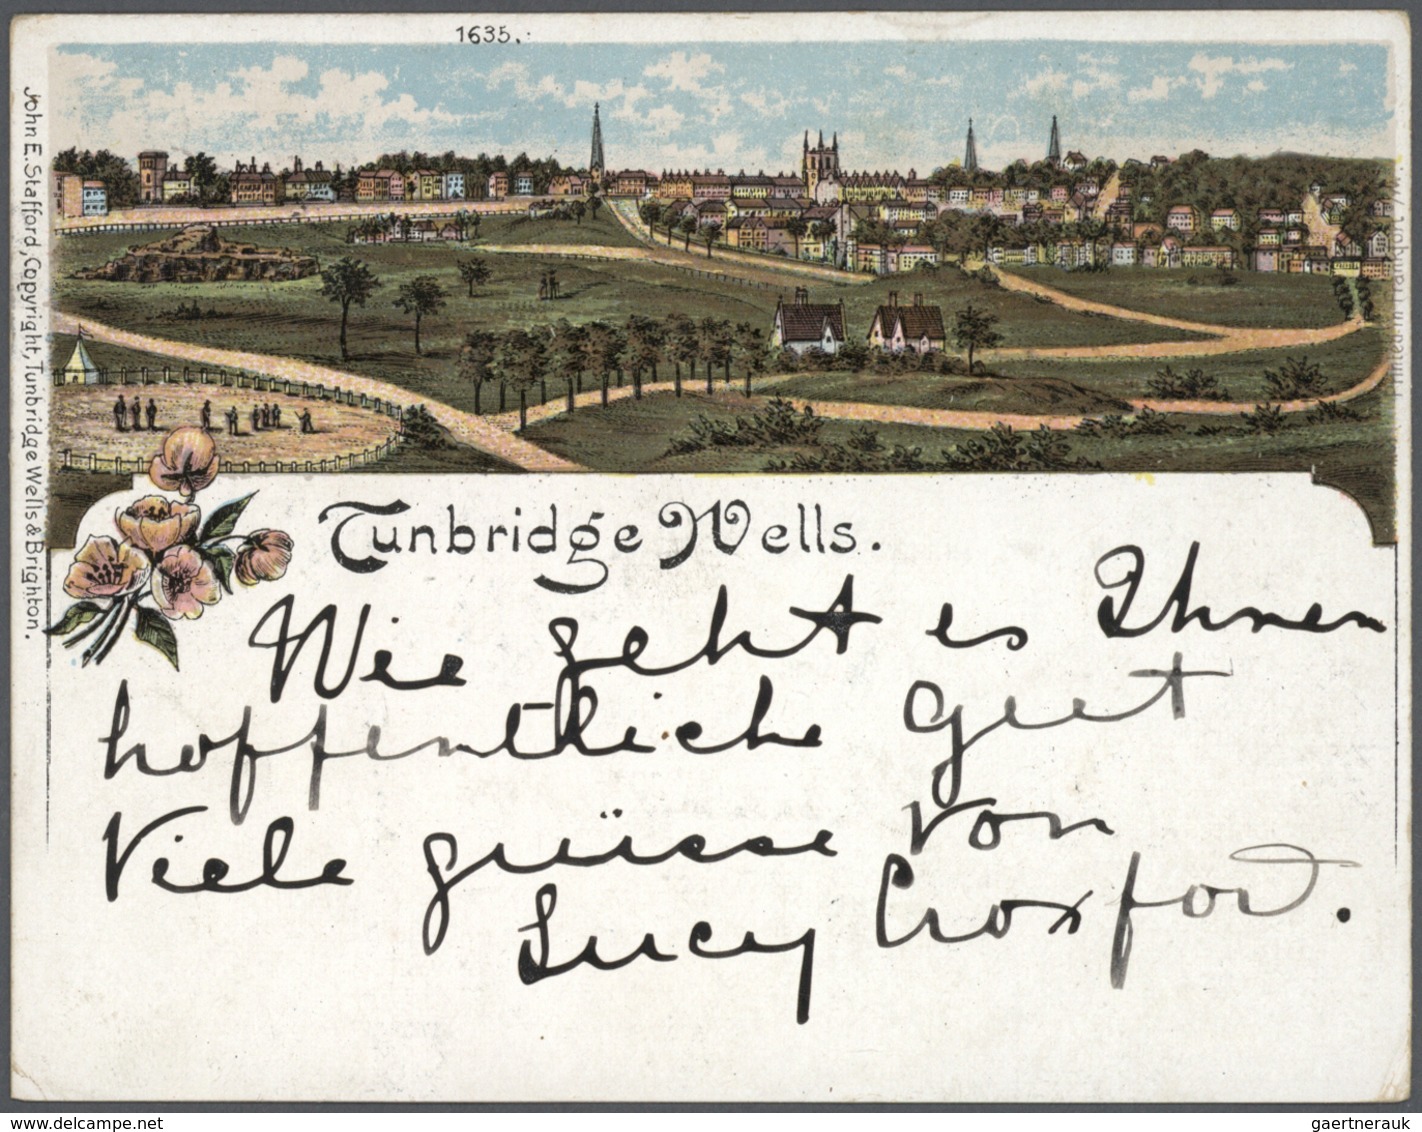 1635.
John E. Stafford, Copyright, Tunbridge Wells & Brighton.
Printed in Frankfort a/M.
Tunbridge Wells.
Wie geht es Ihnen
hoffentliche Guet
Viele grüsse von
Lucy Croxford.
www.delcampe.net
gaertnerauk